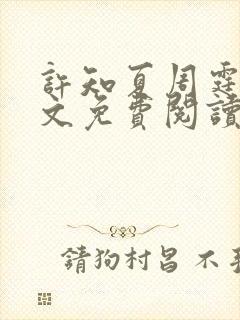 許知夏周霆
文免費閱讀
請狗村呂不